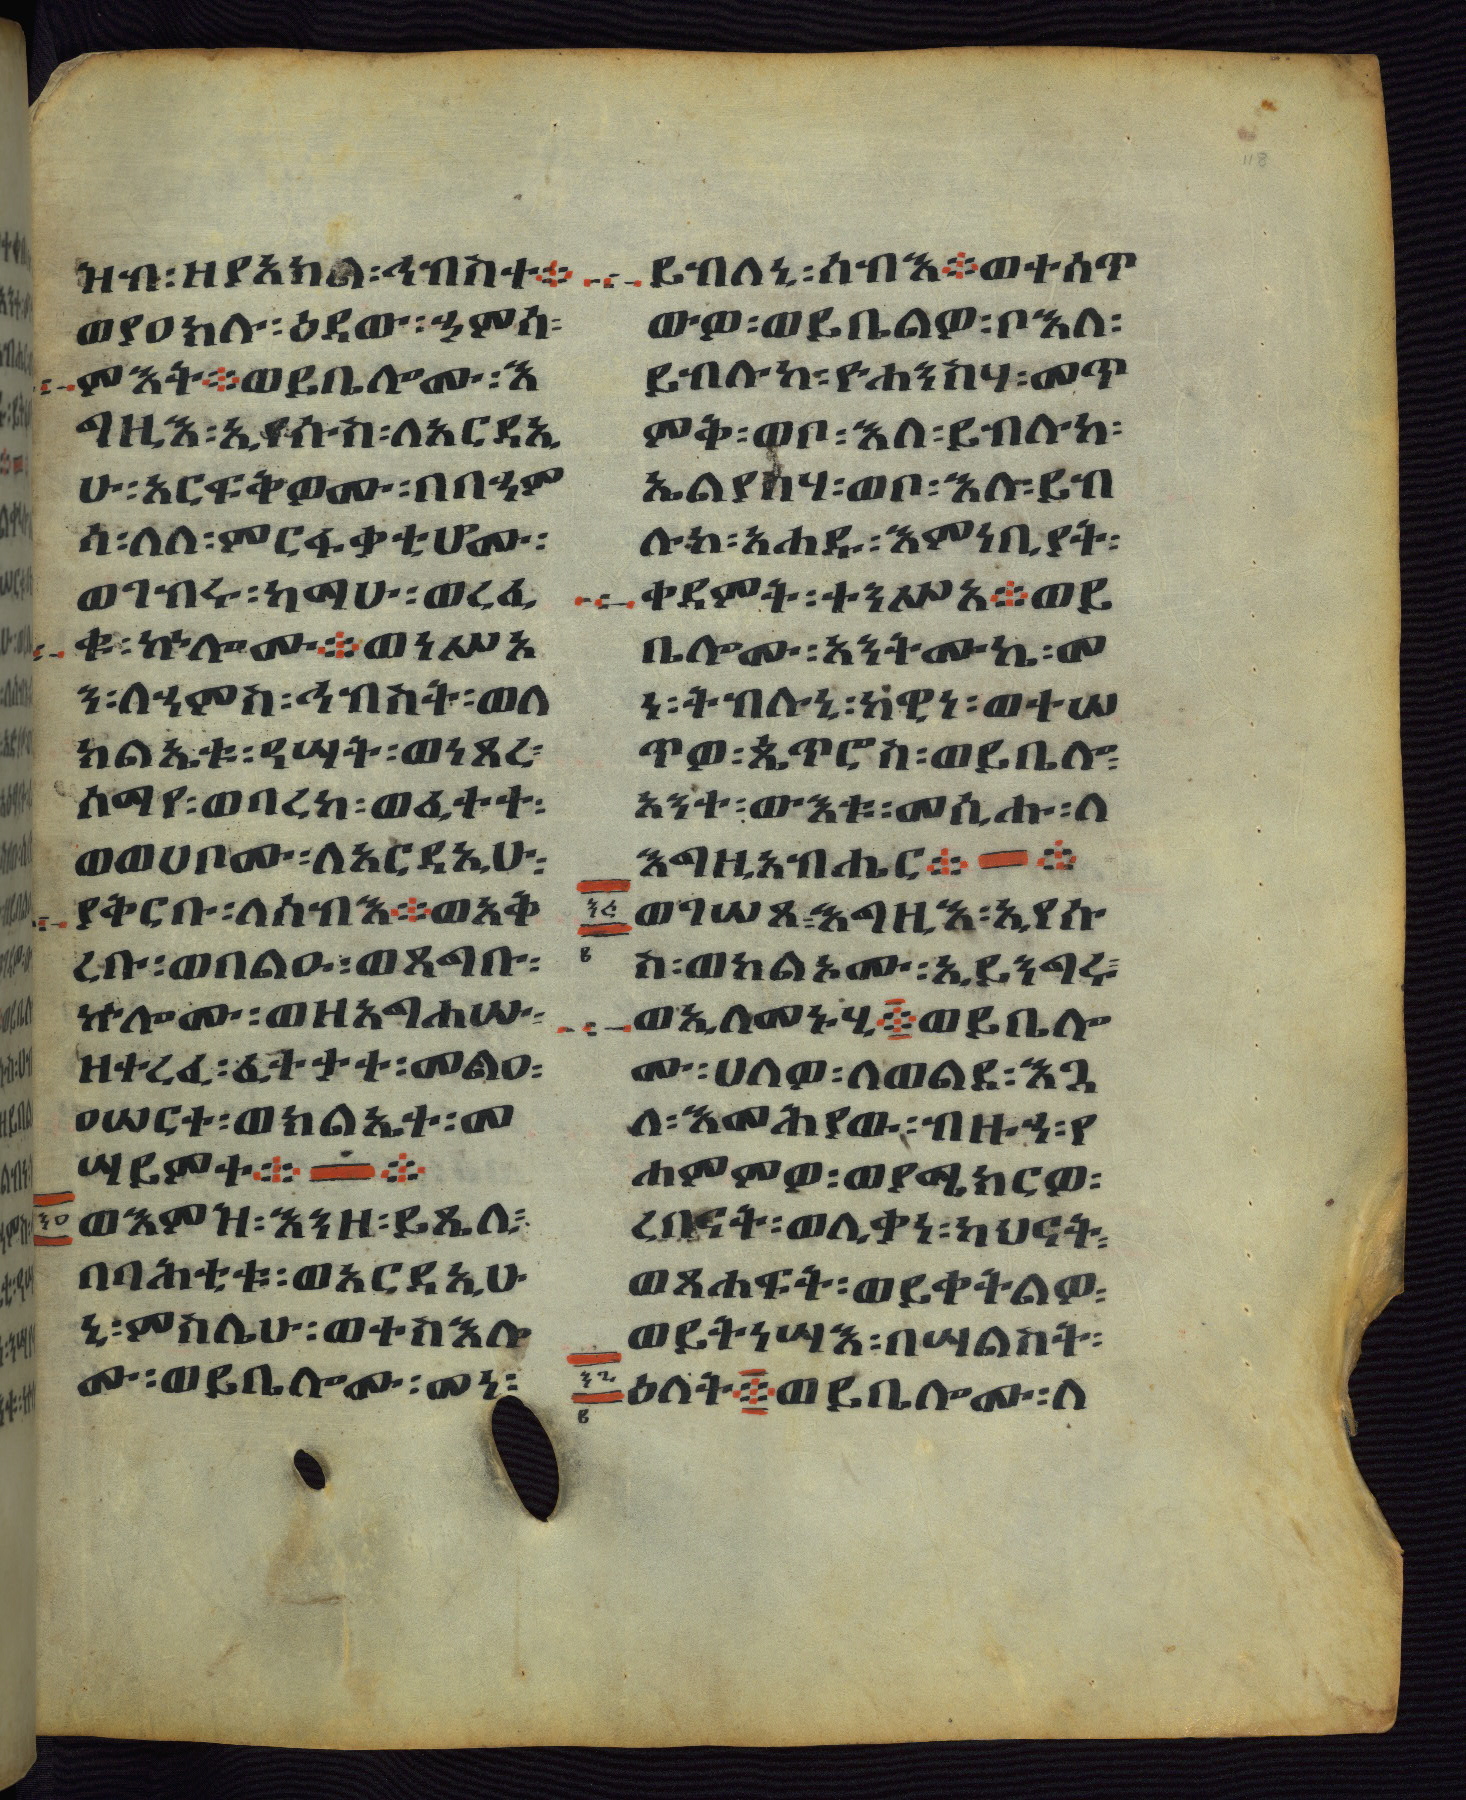 ዝብ፡ዘያአክል፡ኅብስተ፨
ወያዐክሉ፡ዕደው፡ኃምሳ፡
ምእት፨ወይቤሎሙ፡እ
ግዚእ፡ኢየሱስ፡ለአርዳኢ
ሁ፡አርፍቅዎሙ፡በበኃም
ሳ፡ለለ፡ምርፋቃቲሆሙ፡
ወገብሩ፡ካማሁ፡ወረፈ
ቁ፡ኵሎሙ፨ወነሥአ
ን፡ለኃምስ፡ኅብስት፡ወለ
ክልኤቱ፡ዓሣት፡ወነጸረ፡
ሰማየ፡ወባረከ፡ወፈተተ፡
ወወሀቦሙ፡ለአርዳኢሁ፡
ያቅርቡ፡ለሰብእ፨ወአቅ
ረቡ፡ወበልዑ፡ወጸግቡ፡
ኵሎሙ፡ወዘአግሐሡ፡
ዘተረፈ፡ፈትታተ፡መልዐ፡
ዐሠርተ፡ወክልኤተ፡መ
ሣይምተ፨
፶ወ ወእምዝ፡እንዘ፡ይጼሊ፡
በባሕቲቱ፡ወአርዳኢሁ
ኒ፡ምስሌሁ፡ወተስእሎ
ሙ፡ወይቤሎሙ፡መነ፡
ይብለኒ፡ሰብእ፨ወተሰጥ
ውዎ፡ወይቤልዎ፡ቦእለ፡
ይብሉከ፡ዮሐንስሃ፡መጥ
ምቅ፡ወቦ፡እለ፡ይብሉከ፡
ኤልያስሃ፡ወቦ፡እሉ፡ይብ
ሉከ፡አሐዱ፡እምነቢያት፡
ቀደምት፡ተንሥአ፨ወይ
ቤሎሙ፡አንትሙኬ፡መ
ነ፡ትብሉኒ፡ከዊነ፡ወተሠ
ጥወ፡ጴጥሮስ፡ወይቤሎ፡
አንተ፡ውእቱ፡መሲሑ፡ለ
እግዚአብሔር፨
ወገሠጸ፡እግዚእ፡ኢየሱ
ስ፡ወከልኦሙ፡ኢይንግሩ፡
ወኢለመኑሂ፨ወይቤሎ
ሙ፡ሀለዎ፡ለወልደ፡እጓ
ለ፡እመሕያው፡ብዙኃ፡የ
ሐምምዎ፡ወያሜክርዎ፡
ረበናት፡ወሊቃነ፡ካህናት፡
ወጸሐፍት፡ወይቀትልዎ፡
ወይትነሣእ፡በሣልስት፡
ዕለት፨ወይቤሎሙ፡ለ